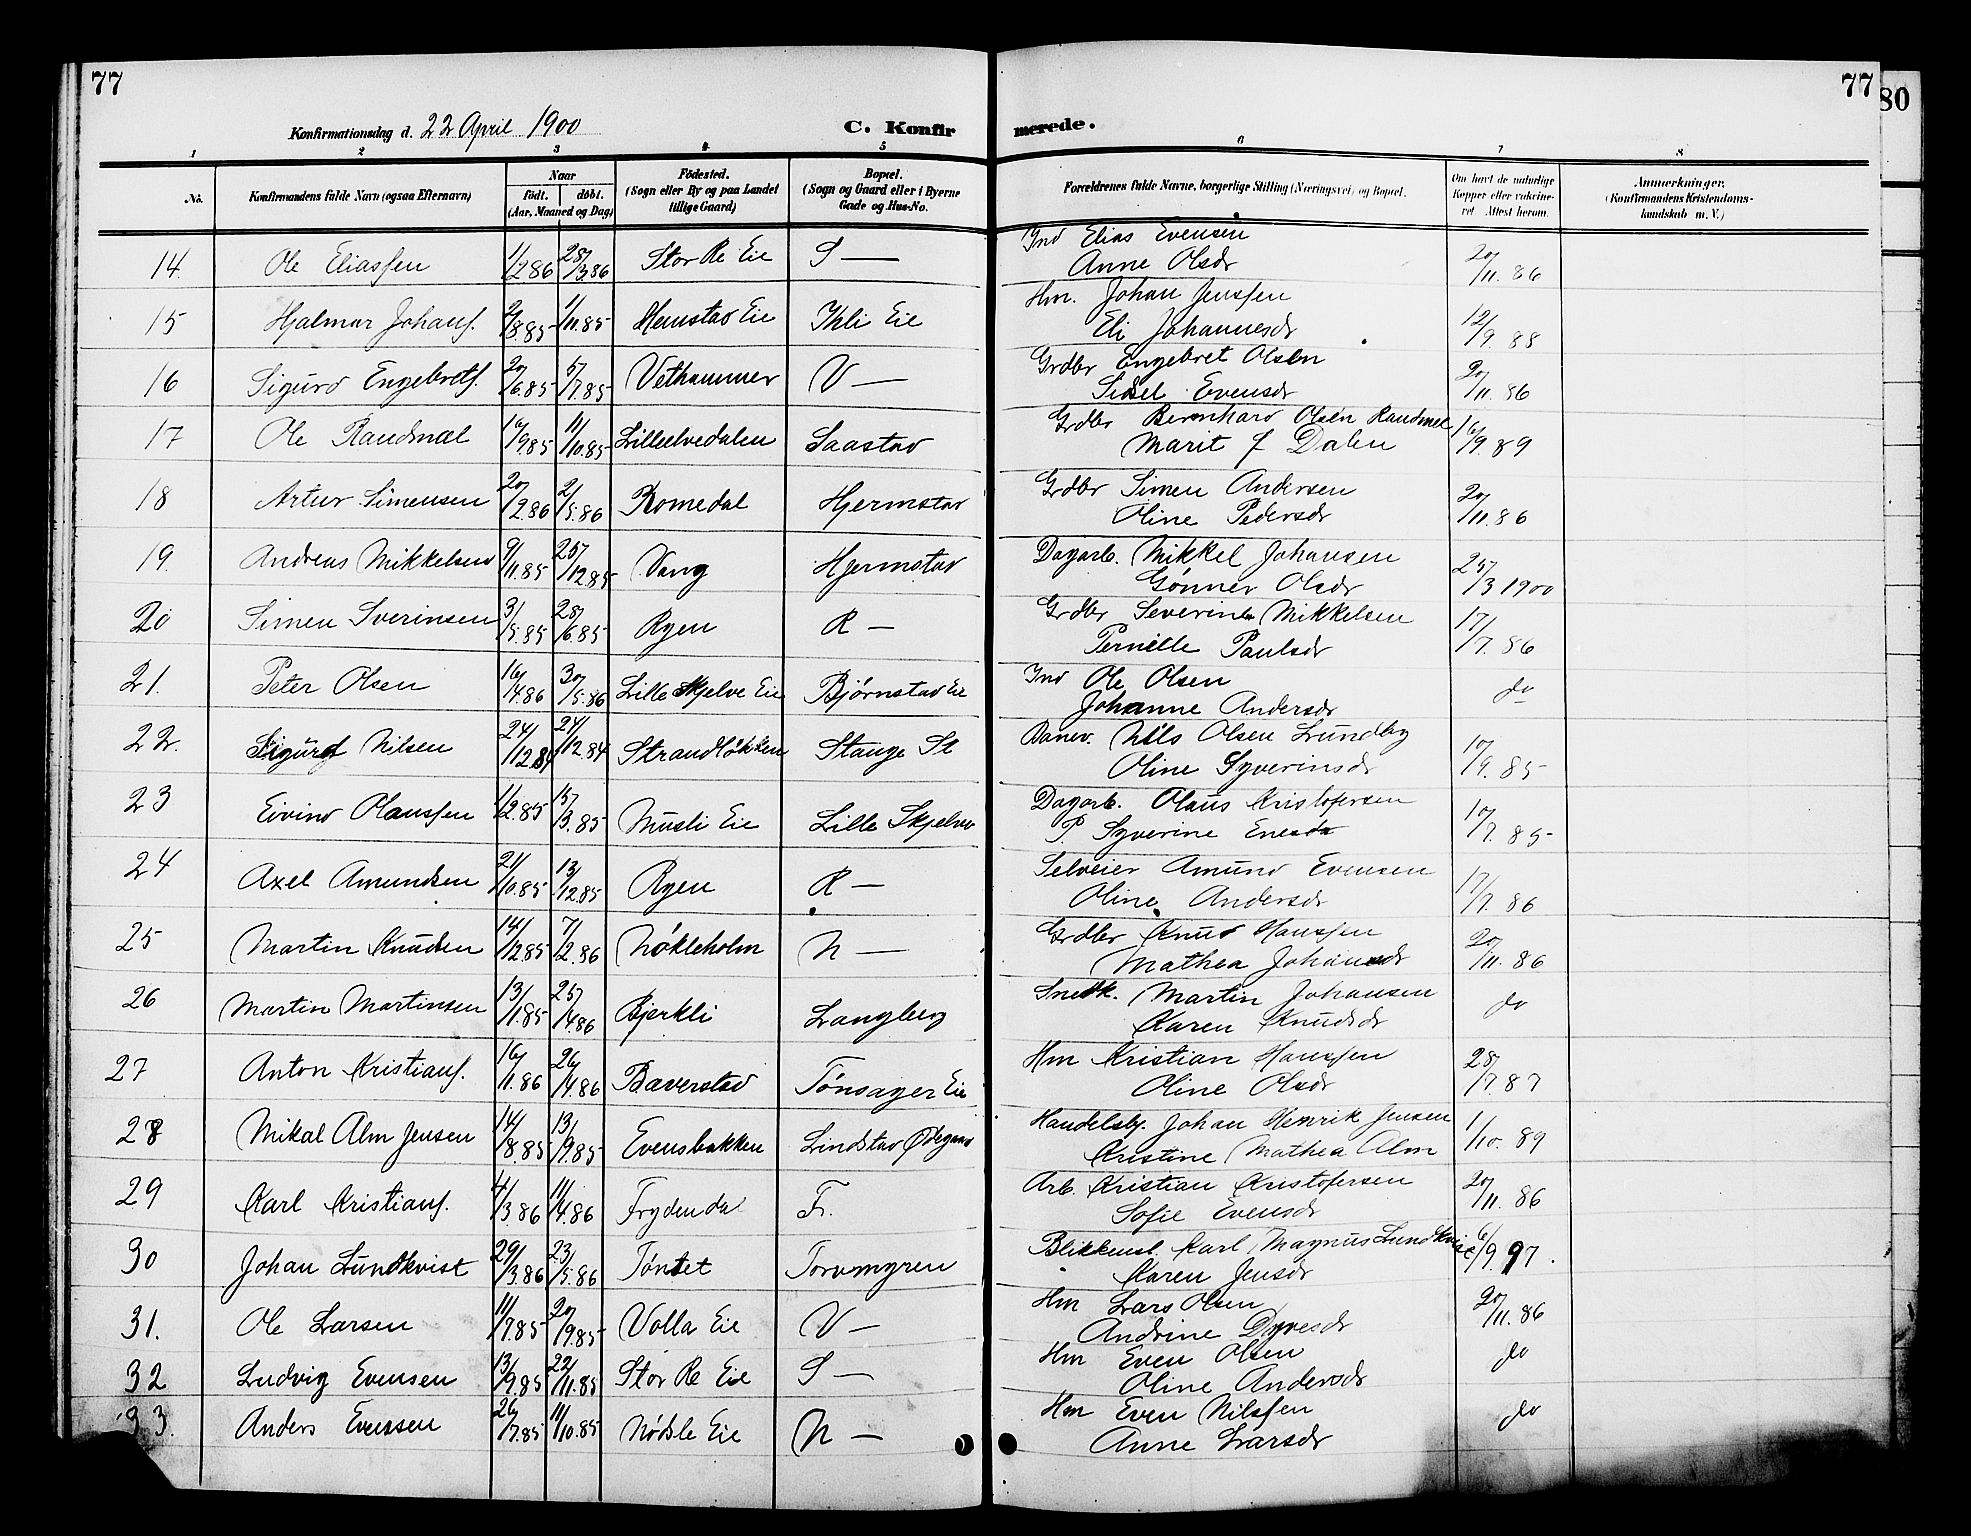 77
77
80
Konfirmationsdag d. 22 April 1900
C. Konfir
merede.
1 2 3 4 5 6 7 8
No. Konfirmandens fulde Navn (ogsaa Efternavn) Naar født. døbt. (Aar, Maaned og Dag) Fødested. (Sogn eller By og paa Landet tillige Gaard) Bopæl. (Sogn og Gaard eller i Byerne Gade og Hus-No. Forældrenes fulde Navne, borgerlige Stilling (Næringsvei) og Bopæl. Om havt de naturlige Kopper eller vaccineret Attest herom. Anmærkninger. (Konfirmandens Kristendomskundskab m. V.)
14. Ole Eliassen 1/2 86 28/3 86 Stor Re Eie S — Ind Elias Evensen 20/11. 86
Anne Olsdr
15 Hjalmar Johans. 2/8.85 1/11.85 Hemstad Eie Ihli Eie Hm. Johan Jenssen 12/9 88
Eli Johannesdr
16 Sigurd Engebrets. 20/6.85 5/7.85 Vethammer V — Grdbr Engebret Olsen 20/11. 86
Sidsel Evensdr
17 Ole Randmæl 10/9.85 11/10.85 Lilleelvedalen Saastad Grdbr Bernhard Olsen Randmæl 16/9 89
Marit f Dalen
18 Artur Simensen 20/2.86 2/5.86 Romedal Hjermstad Grdbr Simen Andersen 20/11.86
Oline Pedersdr
19. Andreas Mikkelsen 9/11.85 25/12.85 Vang Hjermstad Dagarb. Mikkel Johansen 25/3 1900
Gønner Olsdr
20 Simen Sverinsen 3/5.85 28/6.85 Ryen R — Grdbr Severin Mikkelsen 17/7. 86
Pernille Paulsdr
21. Peter Olsen 16/4.86 30/5.86 Lille Skjelve Eie Bjørnstad Eie Ind Ole Olsen do
Johanne Andersdr
22. Sigurd Nilsen 24/12.84 24/12.84 Strandløkken Stange St Banev. Nils Olsen Lundby 10/9. 85
Oline Syverinsdr
23 Eivind Olaussen 1/2.85 15/3.85 Musli Eie Lille Skjelve Dagarb. Olaus Kristofersen 10/7. 85
P. Syverine Enesdr
24 Axel Amundsen 21/10.85 13/12.85 Ryen R — Selveier Amund Evensen 17/7. 86
Oline Andersdr
25 Martin Knudsen 14/12.85 7/2.86 Nøkleholm N — Grdbr Knud Hanssen 20/11. 86
Mathea Johansdr
26 Martin Martinsen 13/1.85 25/4.86 Bjerkli Langberg Snedk. Martin Johansen do
Karen Knudsdr
27 Anton Kristians. 16/1.86 26/4.86 Baverstad Tønsager Eie Hm Kristian Hanssen 28/7.87
Oline Olsdr
28 Mikal Alm Jensen 14/8.85 13/9.85 Evensbakken Lindstad Ødegaard Handelsbj. Johan Henrik Jensen 1/10. 89
Kristine Mathea Alm
29 Karl Kristians. 4/3.86 11/4.86 Frydendal F. Arb. Kristian Kristofersen 20/11. 86
Sofie Evensdr
30 Johan Lundkvist 29/3.86 23/5.86 Tøntet Torvmyren Blikkensl. Karl Magnus Lundkvist 6/9 97.
Karen Jensdr
31. Ole Larsen 11/7.85 20/9.85 Volla Eie V — Hm Lars Olsen 20/11.86
Andrine Dyresdr
32 Ludvig Evensen 13/9.85 22/11.85 Stor Re Eie S — Hm Even Olsen do
Oline Andersdr
33. Anders Evensen 26/7.85 11/10.85 Nødsle Eie N — Hm Even Nilssen do
Anne Larsdr